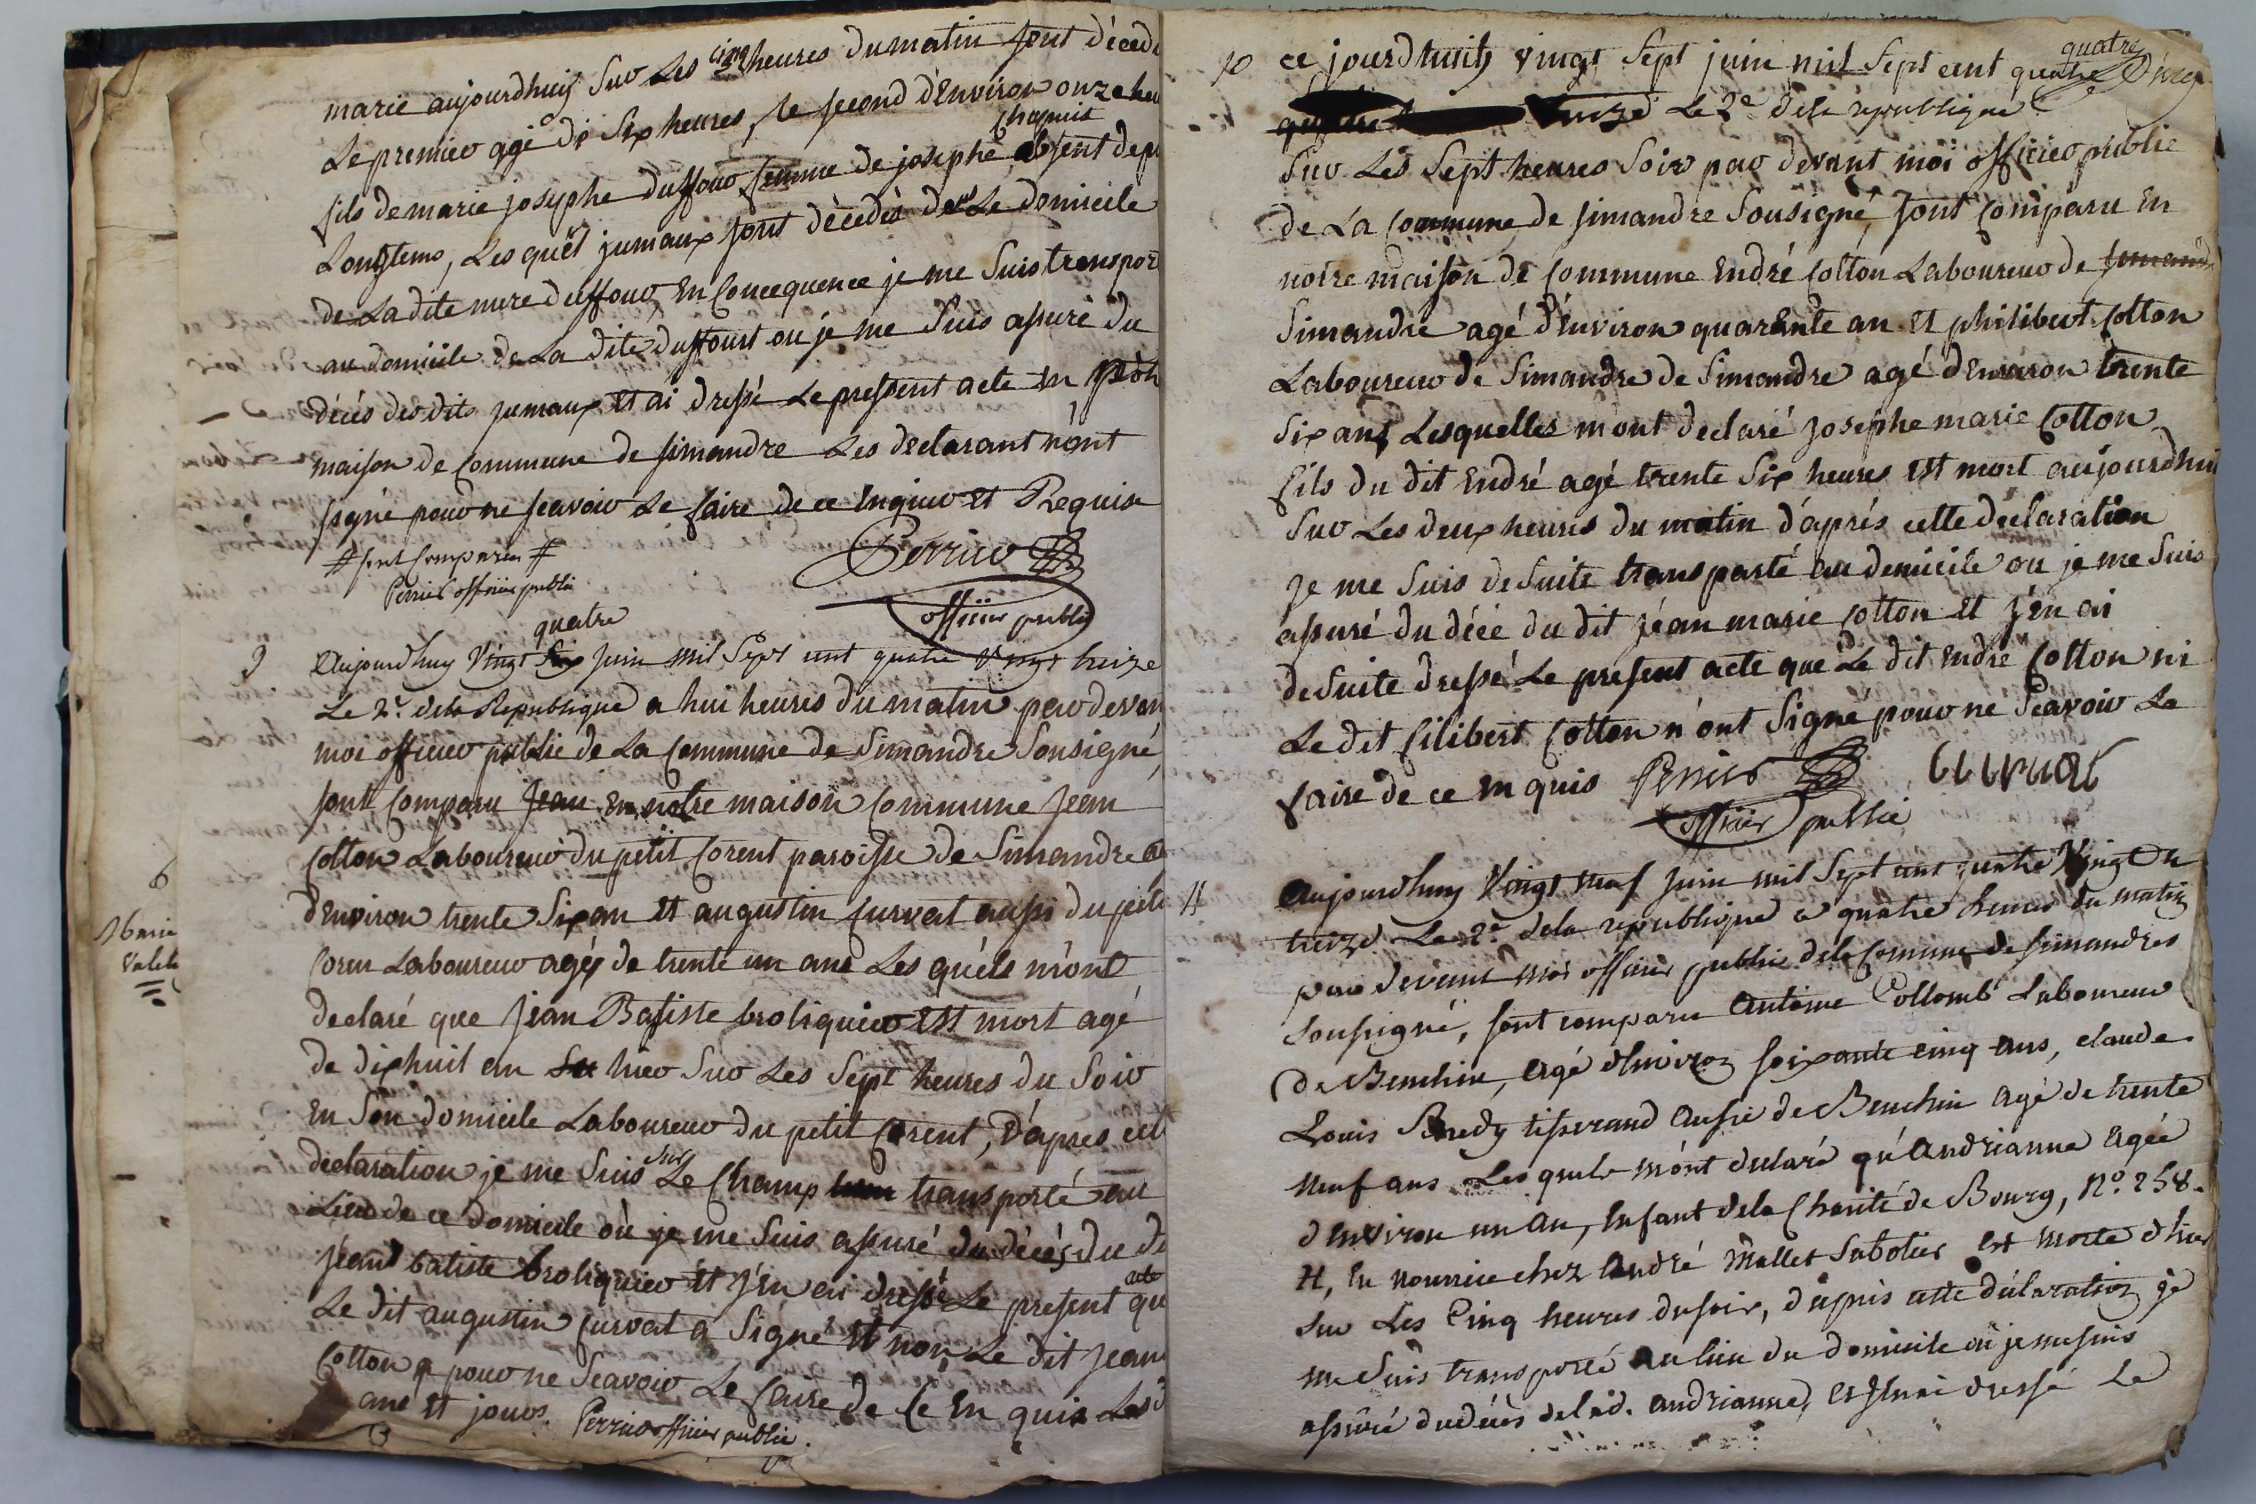 marie aujourdhuis Suv Les cinq heures du matin sont décedé
Le premier agé de Six heures, le second d'Environ onze heu
fils de marie josephe duffour femme de josephe chapuit absent dep
Longtems, Les quel jumaux sont dècedés de Le domicile
de La dite mere duffour, En Concequence je me Suis transpor
au domicile de La dite duffour ou je me Suis assuré du
décés des dits jumaux Et ai dressé Le pressent acte En
maison de Commune de simandre Les declarant n'ont
signé pour ne scavoir Le faire de ce Enquis Et Requis
# sont comparus #
Perrier officier public
Perrier
officier public
9 Aujourdhuy Vingt Six quatre Juin mil Sept cent quatre Vingt treize
Le 2e. dela Republique a hui heures du matin par devan
moi officier public de La Commune de Simandre Sousigné,
sont Comparu Jean En notre maison Commune Jean
Cotton Laboureur du petit Corent paroisse de Simandre
d'Environ trente Six an Et augustin curvat aussi du petit
Coren Laboureur agés de trente un ans Les quéls m'ont
declaré que Jean Batiste broliquier Est mort agé
de dixhuit an hier Suv Les Sept heures du Soir
En Son domicile Laboureur du petit Corent, D'apres cett
declaration je me Suis Sur Le Champ transporté au
Lieu de ce domicile où je me Suis assuré du décés du di
jean batiste broliquier Et J'en ai dressé Le present acte qu
Le dit augustin curvat a Signé Et non Le dit Jean
Cotton pour ne Scavoir Le faire de Ce En quis Les
ans Et jours. Perrier officier public.
6
16 mai
Valet
10 ce jourdhuit vingt Sept juin mil Sept cent quatre quatre Vingt
treize Le 2e dela republique
Suv Les Sept heures Soir par devant moi officier public
de La Commune de Simandre Sousigné, sont Comparu En
notre maison de Commune Endré Cotton Laboureur de
Simandre agé d'Environ quarente an Et philibert Cotton
Laboureur de Simandre de Simandre agé d'Environ trente
Six ans Lesquelles m'ont declaré Josephe marie Cotton
fils du dit Endré agé trente Six heures Est mort aujourdhui
Suv Les deux heures du matin d'aprés cette declaration
Je me Suis de Suite transparté au domicile ou je me Suis
assuré du décé du dit jéan marie Cotton Et J'en ai
de Suite dressé Le present acte que Le dit Endré Cotton ni
Le dit filibert Cotton n'ont Signé pour ne Scavoir Le
faire de ce En quis Perrier
officier public
11 Aujourdhuy Vingt neuf Juin mil Sept cent quatre Vingt
treize Le 2e dela republique a quatre heures du matin
par devant moi officier public dela Commune de Simandres
soussigné, sont comparu Antoine Collomb Laboureur
de Beuchin, agé d'Environ soixante cinq ans, claude
Louis Bredy tisserand aussi de Beuchin agé de trente
neuf ans Les quels m'ont declaré qu'Andrianne agée
d'Environ un an, Enfant dela Charité de Bourg, No. 258.
H, En nourrice chez André Mallet Sabotier est morte d'hier
sur Les Cinq heures du soir, d'apris cette déclaration je
me Suis transporté au lieu du domicile ou je me suis
assuré du décès de lad. andrianne, et J'en ai dressé Le